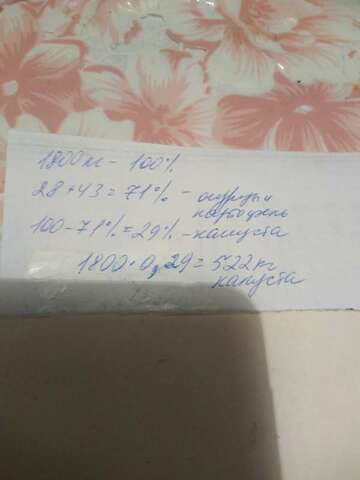 1800 кг - 100%
28 + 43 = 71% - огурцы и
картофель
100 - 71% = 29% - капуста
1800 · 0,29 = 522 кг
капуста